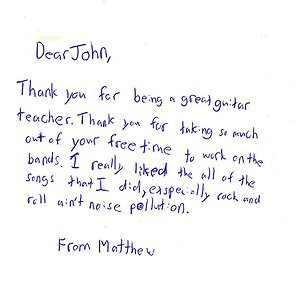 Dear John,
Thank you for being a great guitar
teacher. Thank you for taking so much
out of your free time to work on the
bands. I really liked the all of the
songs that I did, exspecially rock and
roll ain't noise pollution.
From Matthew